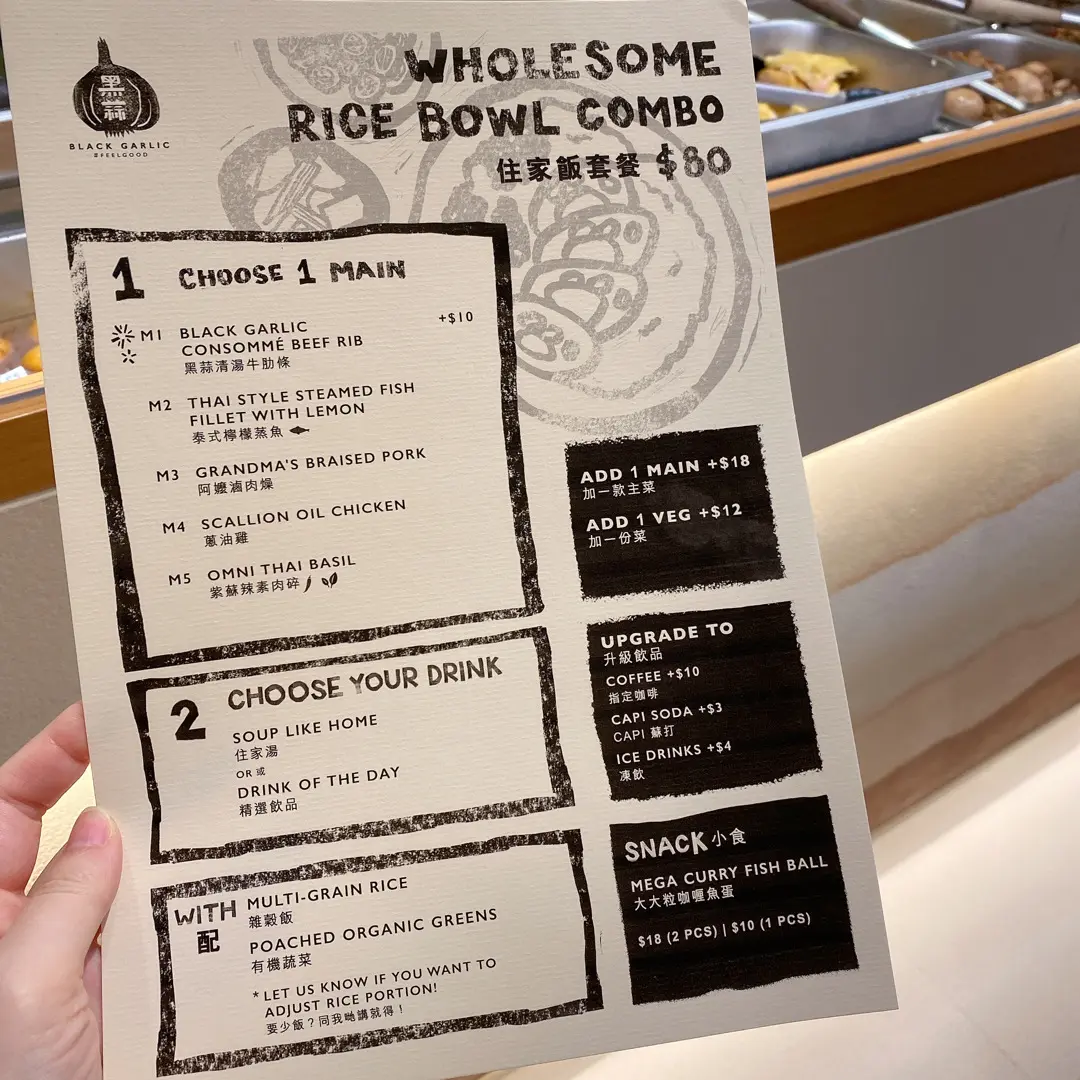 黑蒜
BLACK GARLIC
#FEELGOOD
WHOLESOME
RICE BOWL COMBO
住家飯套餐 $80
1 CHOOSE 1 MAIN
M1 BLACK GARLIC +$10
CONSOMMÉ BEEF RIB
黑蒜清湯牛肋條
M2 THAI STYLE STEAMED FISH
FILLET WITH LEMON
泰式檸檬蒸魚
M3 GRANDMA'S BRAISED PORK
阿嬤滷肉燥
M4 SCALLION OIL CHICKEN
蔥油雞
M5 OMNI THAI BASIL
紫蘇辣素肉碎
ADD 1 MAIN +$18
加一款主菜
ADD 1 VEG +$12
加一份菜
2 CHOOSE YOUR DRINK
SOUP LIKE HOME
住家湯
OR 或
DRINK OF THE DAY
精選飲品
UPGRADE TO
升級飲品
COFFEE +$10
指定咖啡
CAPI SODA +$3
CAPI 蘇打
ICE DRINKS +$4
凍飲
WITH
配
MULTI-GRAIN RICE
雜穀飯
POACHED ORGANIC GREENS
有機蔬菜
* LET US KNOW IF YOU WANT TO
ADJUST RICE PORTION!
要少飯？同我哋講就得！
SNACK 小食
MEGA CURRY FISH BALL
大大粒咖喱魚蛋
$18 (2 PCS) | $10 (1 PCS)